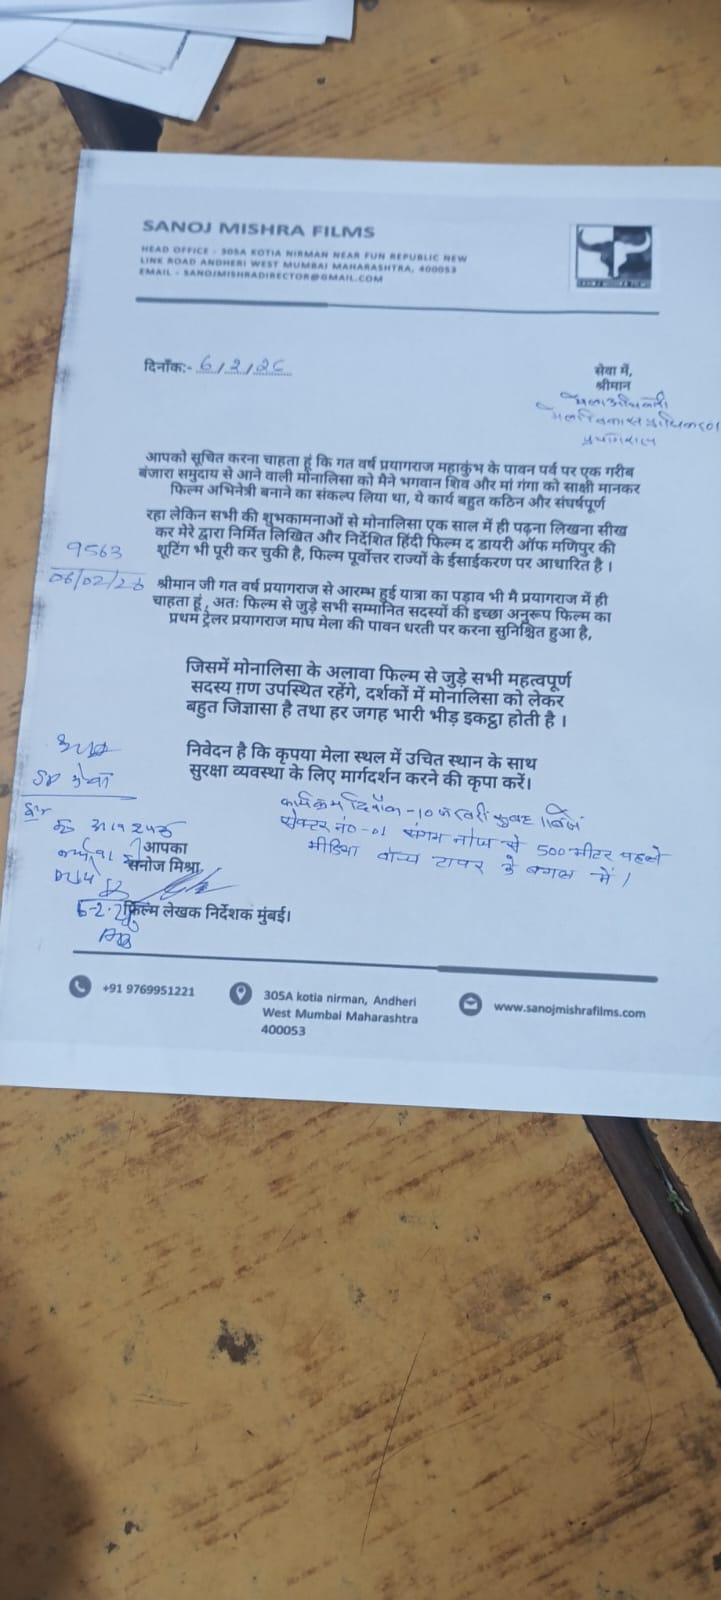 SANOJ MISHRA FILMS
HEAD OFFICE - 305A KOTIA NIRMAN NEAR FUN REPUBLIC NEW
LINK ROAD ANDHERI WEST MUMBAI MAHARASHTRA, 400053
EMAIL - SANOJMISHRADIRECTOR@GMAIL.COM
दिनाँक:- 6/2/26
सेवा में,
श्रीमान
मेलाधिकारी
प्रयागराज
आपको सूचित करना चाहता हूं कि गत वर्ष प्रयागराज महाकुंभ के पावन पर्व पर एक गरीब
बंजारा समुदाय से आने वाली मोनालिसा को मैने भगवान शिव और मां गंगा को साक्षी मानकर
फिल्म अभिनेत्री बनाने का संकल्प लिया था, ये कार्य बहुत कठिन और संघर्षपूर्ण
रहा लेकिन सभी की शुभकामनाओं से मोनालिसा एक साल में ही पढ़ना लिखना सीख
कर मेरे द्वारा निर्मित लिखित और निर्देशित हिंदी फिल्म द डायरी ऑफ मणिपुर की
शूटिंग भी पूरी कर चुकी है, फिल्म पूर्वोत्तर राज्यों के ईसाईकरण पर आधारित है ।
9563
06/02/26
श्रीमान जी गत वर्ष प्रयागराज से आरम्भ हुई यात्रा का पड़ाव भी मै प्रयागराज में ही
चाहता हूं , अतः फिल्म से जुड़े सभी सम्मानित सदस्यों की इच्छा अनुरूप फिल्म का
प्रथम ट्रेलर प्रयागराज माघ मेला की पावन धरती पर करना सुनिश्चित हुआ है,
जिसमें मोनालिसा के अलावा फिल्म से जुड़े सभी महत्वपूर्ण
सदस्य ग़ण उपस्थित रहेंगे, दर्शकों में मोनालिसा को लेकर
बहुत जिज्ञासा है तथा हर जगह भारी भीड़ इकट्ठा होती है ।
निवेदन है कि कृपया मेला स्थल में उचित स्थान के साथ
सुरक्षा व्यवस्था के लिए मार्गदर्शन करने की कृपा करें।
SP मेला
कार्यक्रम दिनाँक -10 फरवरी सुबह 11 बजे
सेक्टर नं0-01 संगम नोज से 500 मीटर पहले
मीडिया वॉच टावर के बगल में।
आपका
सनोज मिश्रा
6-2-26
फिल्म लेखक निर्देशक मुंबई।
+91 9769951221
305A kotia nirman, Andheri
West Mumbai Maharashtra
400053
www.sanojmishrafilms.com